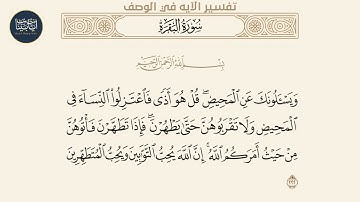 تفسير الآيه في الوصف
سُورَةُ البَقَرَةِ
بِسْمِ اللَّهِ الرَّحْمَٰنِ الرَّحِيمِ
وَيَسْـَٔلُونَكَ عَنِ الْمَحِيضِ ۖ قُلْ هُوَ أَذًى فَاعْتَزِلُوا النِّسَاءَ فِي
الْمَحِيضِ وَلَا تَقْرَبُوهُنَّ حَتَّىٰ يَطْهُرْنَ ۖ فَإِذَا تَطَهَّرْنَ فَأْتُوهُنَّ
مِنْ حَيْثُ أَمَرَكُمُ اللَّهُ ۚ إِنَّ اللَّهَ يُحِبُّ التَّوَّابِينَ وَيُحِبُّ الْمُتَطَهِّرِينَ
٢٢٢